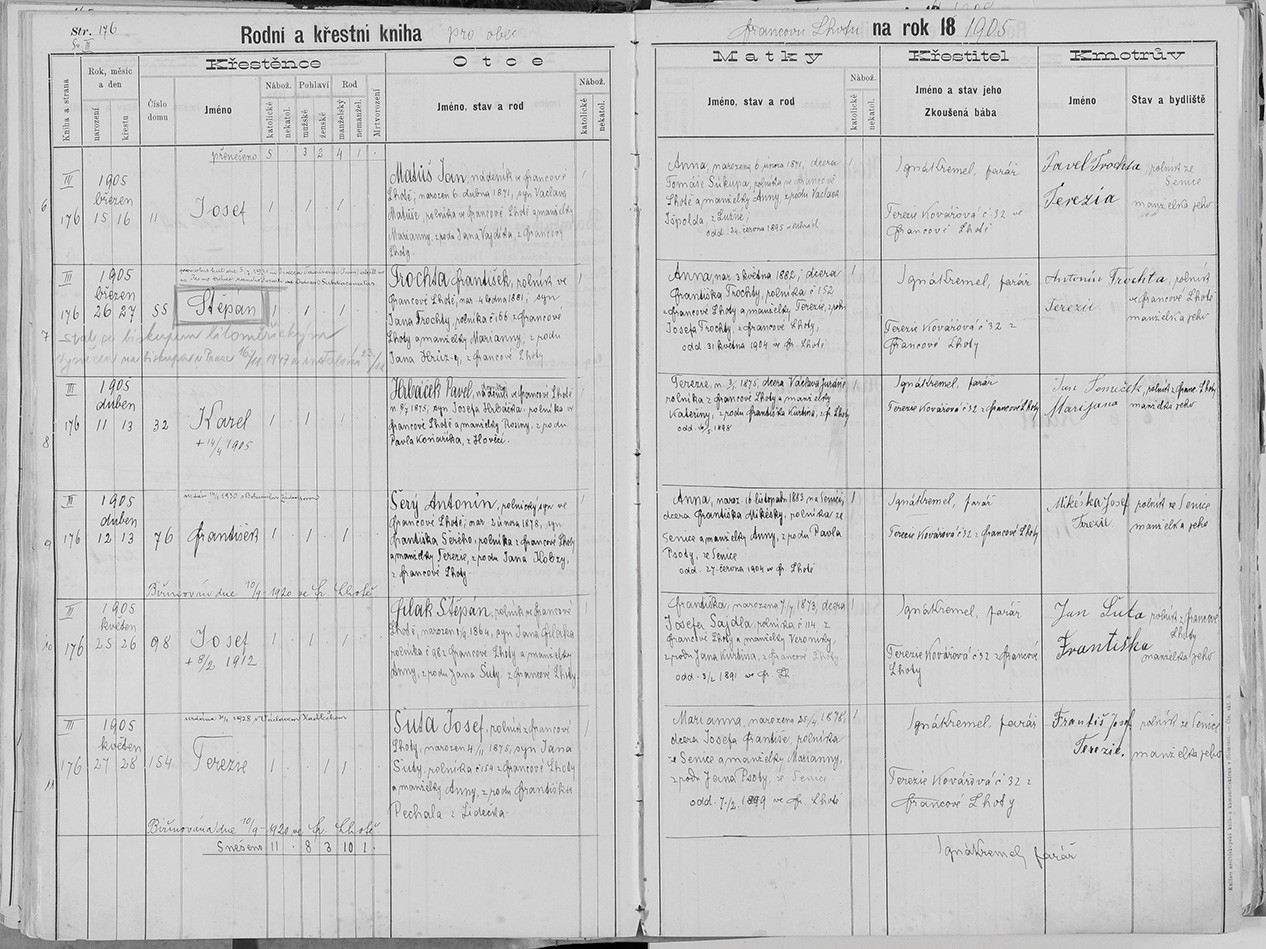 Str. 176
Sv. III
Rodní a křestní kniha pro obec
Francovu Lhotu na rok 18 1905
Kniha a strana
Rok, měsíc a den
narození
křestu
Číslo domu
Křestěnce
Jméno
Nábož.
katolické
nekatol.
Pohlaví
mužské
ženské
Rod
manželský
nemanžel.
Mrtvorození
Otce
Jméno, stav a rod
Nábož.
katolické
nekatol.
Matky
Jméno, stav a rod
Nábož.
katolické
nekatol.
Křestitel
Jméno a stav jeho
Zkoušená bába
Kmotrův
Jméno
Stav a bydliště
přenešeno 5 . 3 2 4 1 .
6
III
176
1905
březen
15 16
11
Josef
1 . 1 . 1 .
Matúš Jan, nádeník ve Francově
Lhotě; narozen 6. dubna 1871, syn Václava
Matúše, rolníka ve Francově Lhotě a manželky
Marianny, z rodu Jana Vajdíka, z Francovy
Lhoty.
1
Anna, narozená 6. února 1871, dcera
Tomáše Sukupa, rolníka ve Francově
Lhotě a manželky Anny, z rodu Václava
odd. 24. června 1895
1
Ignát Kremel, farář
Terezie Kovářová č 32 ve
Francově Lhotě
Pavel Trochta, rolník ze
Senice
Terezia manželka jeho
7
III
176
1905
březen
26 27
55
Štěpán
1 . 1 . 1
stal se biskupem litoměřickým
Trochta František, rolník ve
Francově Lhotě, nar. 4 ledna 1881, syn
Jana Trochty, rolníka č 166 z Francově
Lhoty a manželky Marianny, z rodu
z Francově Lhoty
1
Anna, nar. 3 května 1882, dcera
Františka Trochty, rolníka č 152
z Francově Lhoty a manželky Terezie, z rodu
Josefa Trochty, z Francově Lhoty,
odd. 31 května 1904 ve Fr. Lhotě
1
Ignát Kremel, farář
Terezie Kovářová č 32 z
Francově Lhoty
Antonín Trochta, rolník
ve Francově Lhotě
Terezie manželka jeho
8
III
176
1905
duben
11 13
32
Karel
+ 14/4 1905
1 . 1 . 1
Hrbáček Pavel, nádeník ve Francově Lhotě
syn Josefa Hrbáčka, rolníka ve
Francově Lhotě a manželky Rosiny, z rodu
Pavla Koňaříka, z Hovězí.
Terezie, n. 1875, dcera Václava
rolníka z Francově Lhoty a manželky
Kateřiny, z rodu Františka Kurtina, z Fr. Lhoty
1
Ignát Kremel, farář
Terezie Kovářová č 32 z Francově Lhoty
Marijana
rolník z Franc. Lhoty
manželka jeho
9
III
176
1905
duben
12 13
76
František
1 . 1 . 1 .
Biřmován dne 10/9 1920 ve Fr. Lhotě
Šerý Antonín, rolnický syn ve
Francově Lhotě, nar. 2 února 1878, syn
Františka Šerého, rolníka z Francově Lhoty
a manželky Terezie, z rodu Jana Kobzy,
z Francově Lhoty.
Anna, naroz. 16 listopadu 1883 na Senici,
dcera Františka Mikésky, rolníka ze
Senice a manželky Anny, z rodu Pavla
Psoty, ze Senice
odd. 27. června 1904 ve Fr. Lhotě
1
Ignát Kremel, farář
Terezie Kovářová č 32 z Francově Lhoty
Mikéska Josef rolník ze Senice
Terezie manželka jeho
10
III
176
1905
květen
25 26
98
Josef
+ 8/2 1912
1 . 1 . 1
Filák Štěpán, rolník ve Francově
Lhotě, narozen 1864, syn Jana Filáka
rolníka č 98 z Francově Lhoty a manželky
Anny, z rodu Jana Šuty, z Francově Lhoty.
1
Františka, narozena 7/7 1873, dcera
Josefa Sajdla, rolníka č 114 z
Francově Lhoty a manželky Veroniky,
z rodu Jana Kurtina, z Francově Lhoty
odd. 3/2 1891 ve Fr. Lh.
1
Ignát Kremel, farář
Terezie Kovářová č 32 z Francově
Lhoty
Jan Šuta rolník z Francově
Lhoty
Františka manželka jeho
11
III
176
1905
květen
27 28
154
Terezie
1 . . 1 1
Biřmována dne 10/9 1920 ve Fr. Lhotě
Šuta Josef, rolník z Francově
Lhoty, narozen 4/11 1875, syn Jana
Šuty, rolníka č 154 z Francově Lhoty
a manželky Anny, z rodu Františka
Pechala z Lidečka.
1
Marianna, narozena 25/4 1878,
dcera Josefa Františe, rolníka
ze Senice a manželky Marianny,
z rodu Jana Psoty, ze Senice
odd. 7./2. 1899 ve Fr. Lhotě
1
Ignát Kremel, farář
Terezie Kovářová č 32 z
Francově Lhoty
Františ Josef rolník ze Senice
Terezie. manželka jeho
Snešeno 11 . 8 3 10 1 .
Ignát Kremel, farář